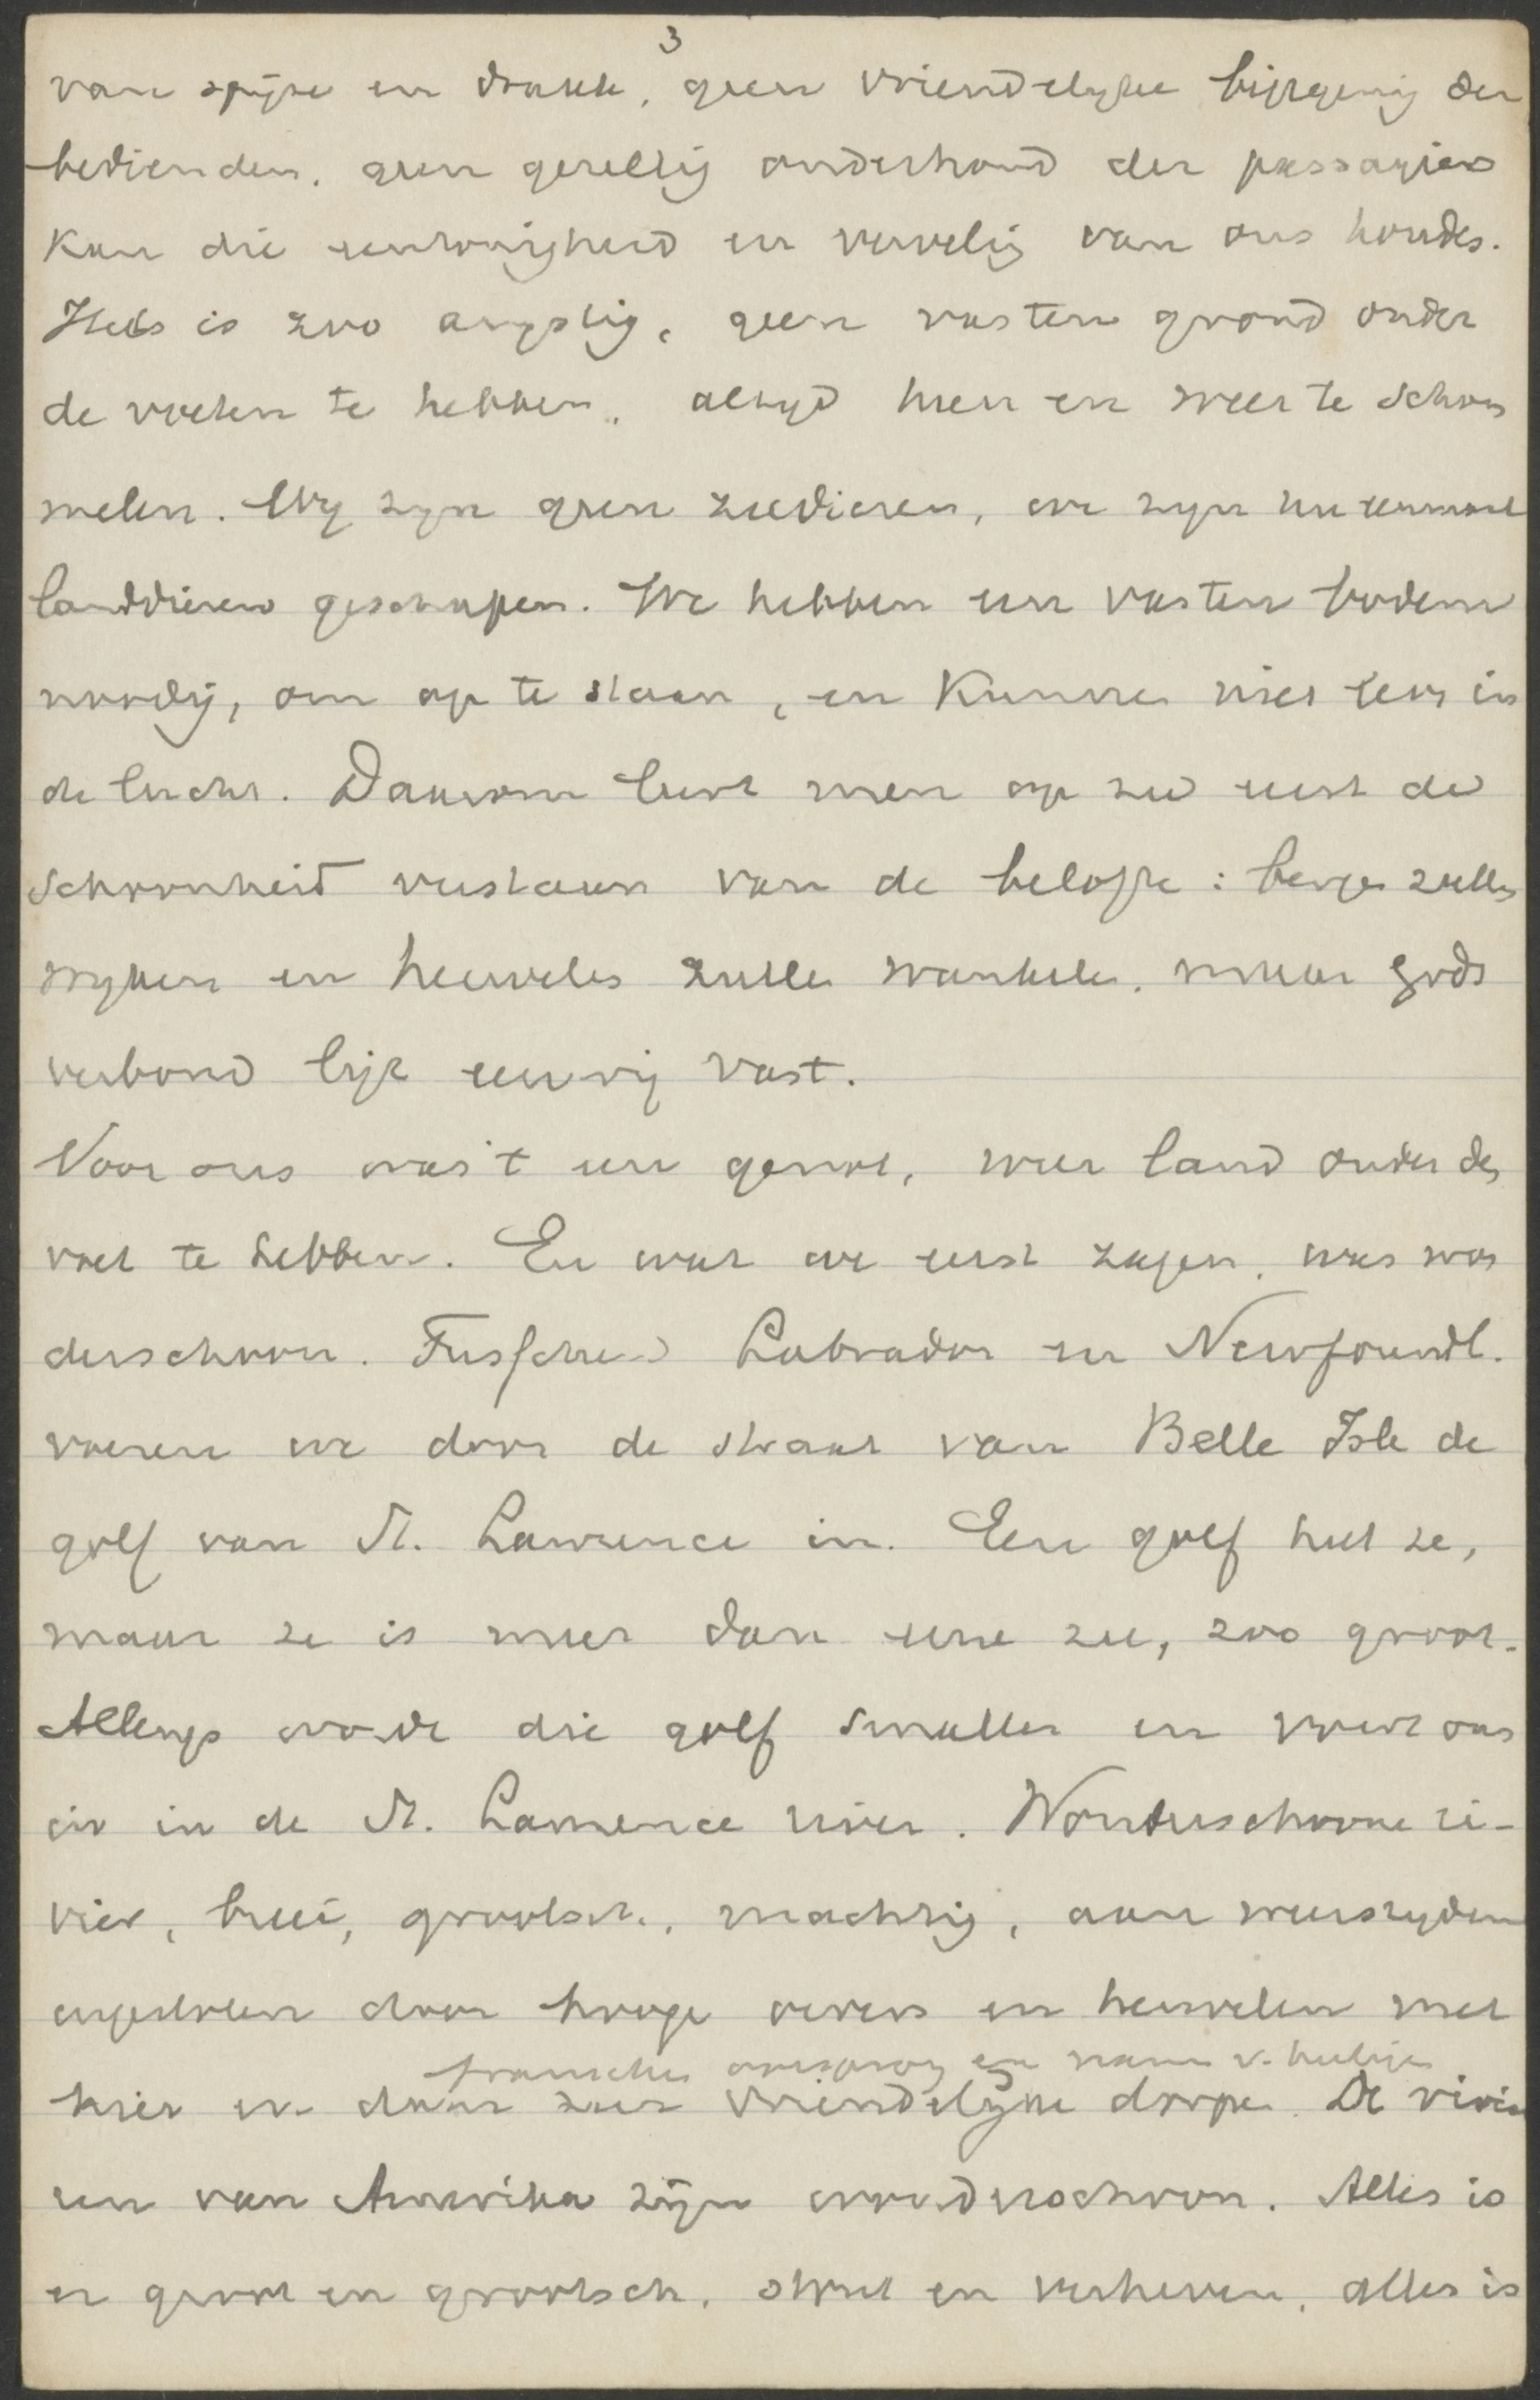 3
van spijze en drank, geen vriendelyke bejegening der
bedienden, geen gezellig onderhoud der passagiers
kan die eentonigheid en verveling van ons houden.
Het is zoo angstig, geen vasten grond onder
de voeten te hebben, altyd heen en weer te schom
melen. Wy zyn geen zeedieren, we zyn nu eenmaal
landdieren geschapen. We hebben een vasten bodem
noodig, om op te staan, en kunnen niet leven in
de lucht. Daarom leert men op zee eerst de
schoonheid verstaan van de belofte: bergen zullen
wyken en heuvelen zullen wankelen, maar Gods
verbond ligt eeuwig vast.
Voor ons was 't een genot, weer land onder den
voet te hebben. En wat we eerst zagen, was won
derschoon. Tusschen Labrador en Newfoundl.
voeren we door de straat van Belle Isle de
golf van St. Lawrence in. Een golf heet ze,
maar ze is meer dan eene zee, zoo groot.
Allengs wordt die golf smaller en voert ons
in de St. Lawrence rivier. Wonderschoone ri-
vier, breed, grootsch, machtig, aan weerszyden
ingesloten door hooge oevers en heuvelen met
fransche oorsprong en namen v. heilige
hier en daar zeer vriendelyke dorpen. De rivie
ren van Amerika zijn wonderschoon. Alles is
er groot en grootsch, stout en verheven, alles is